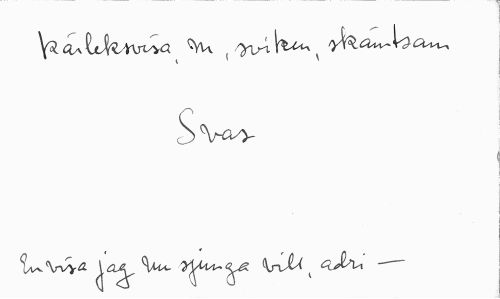 Kärleksvisa, m, sviken, skämtsam
Svar
En visa jag nu sjunga vill, adri —